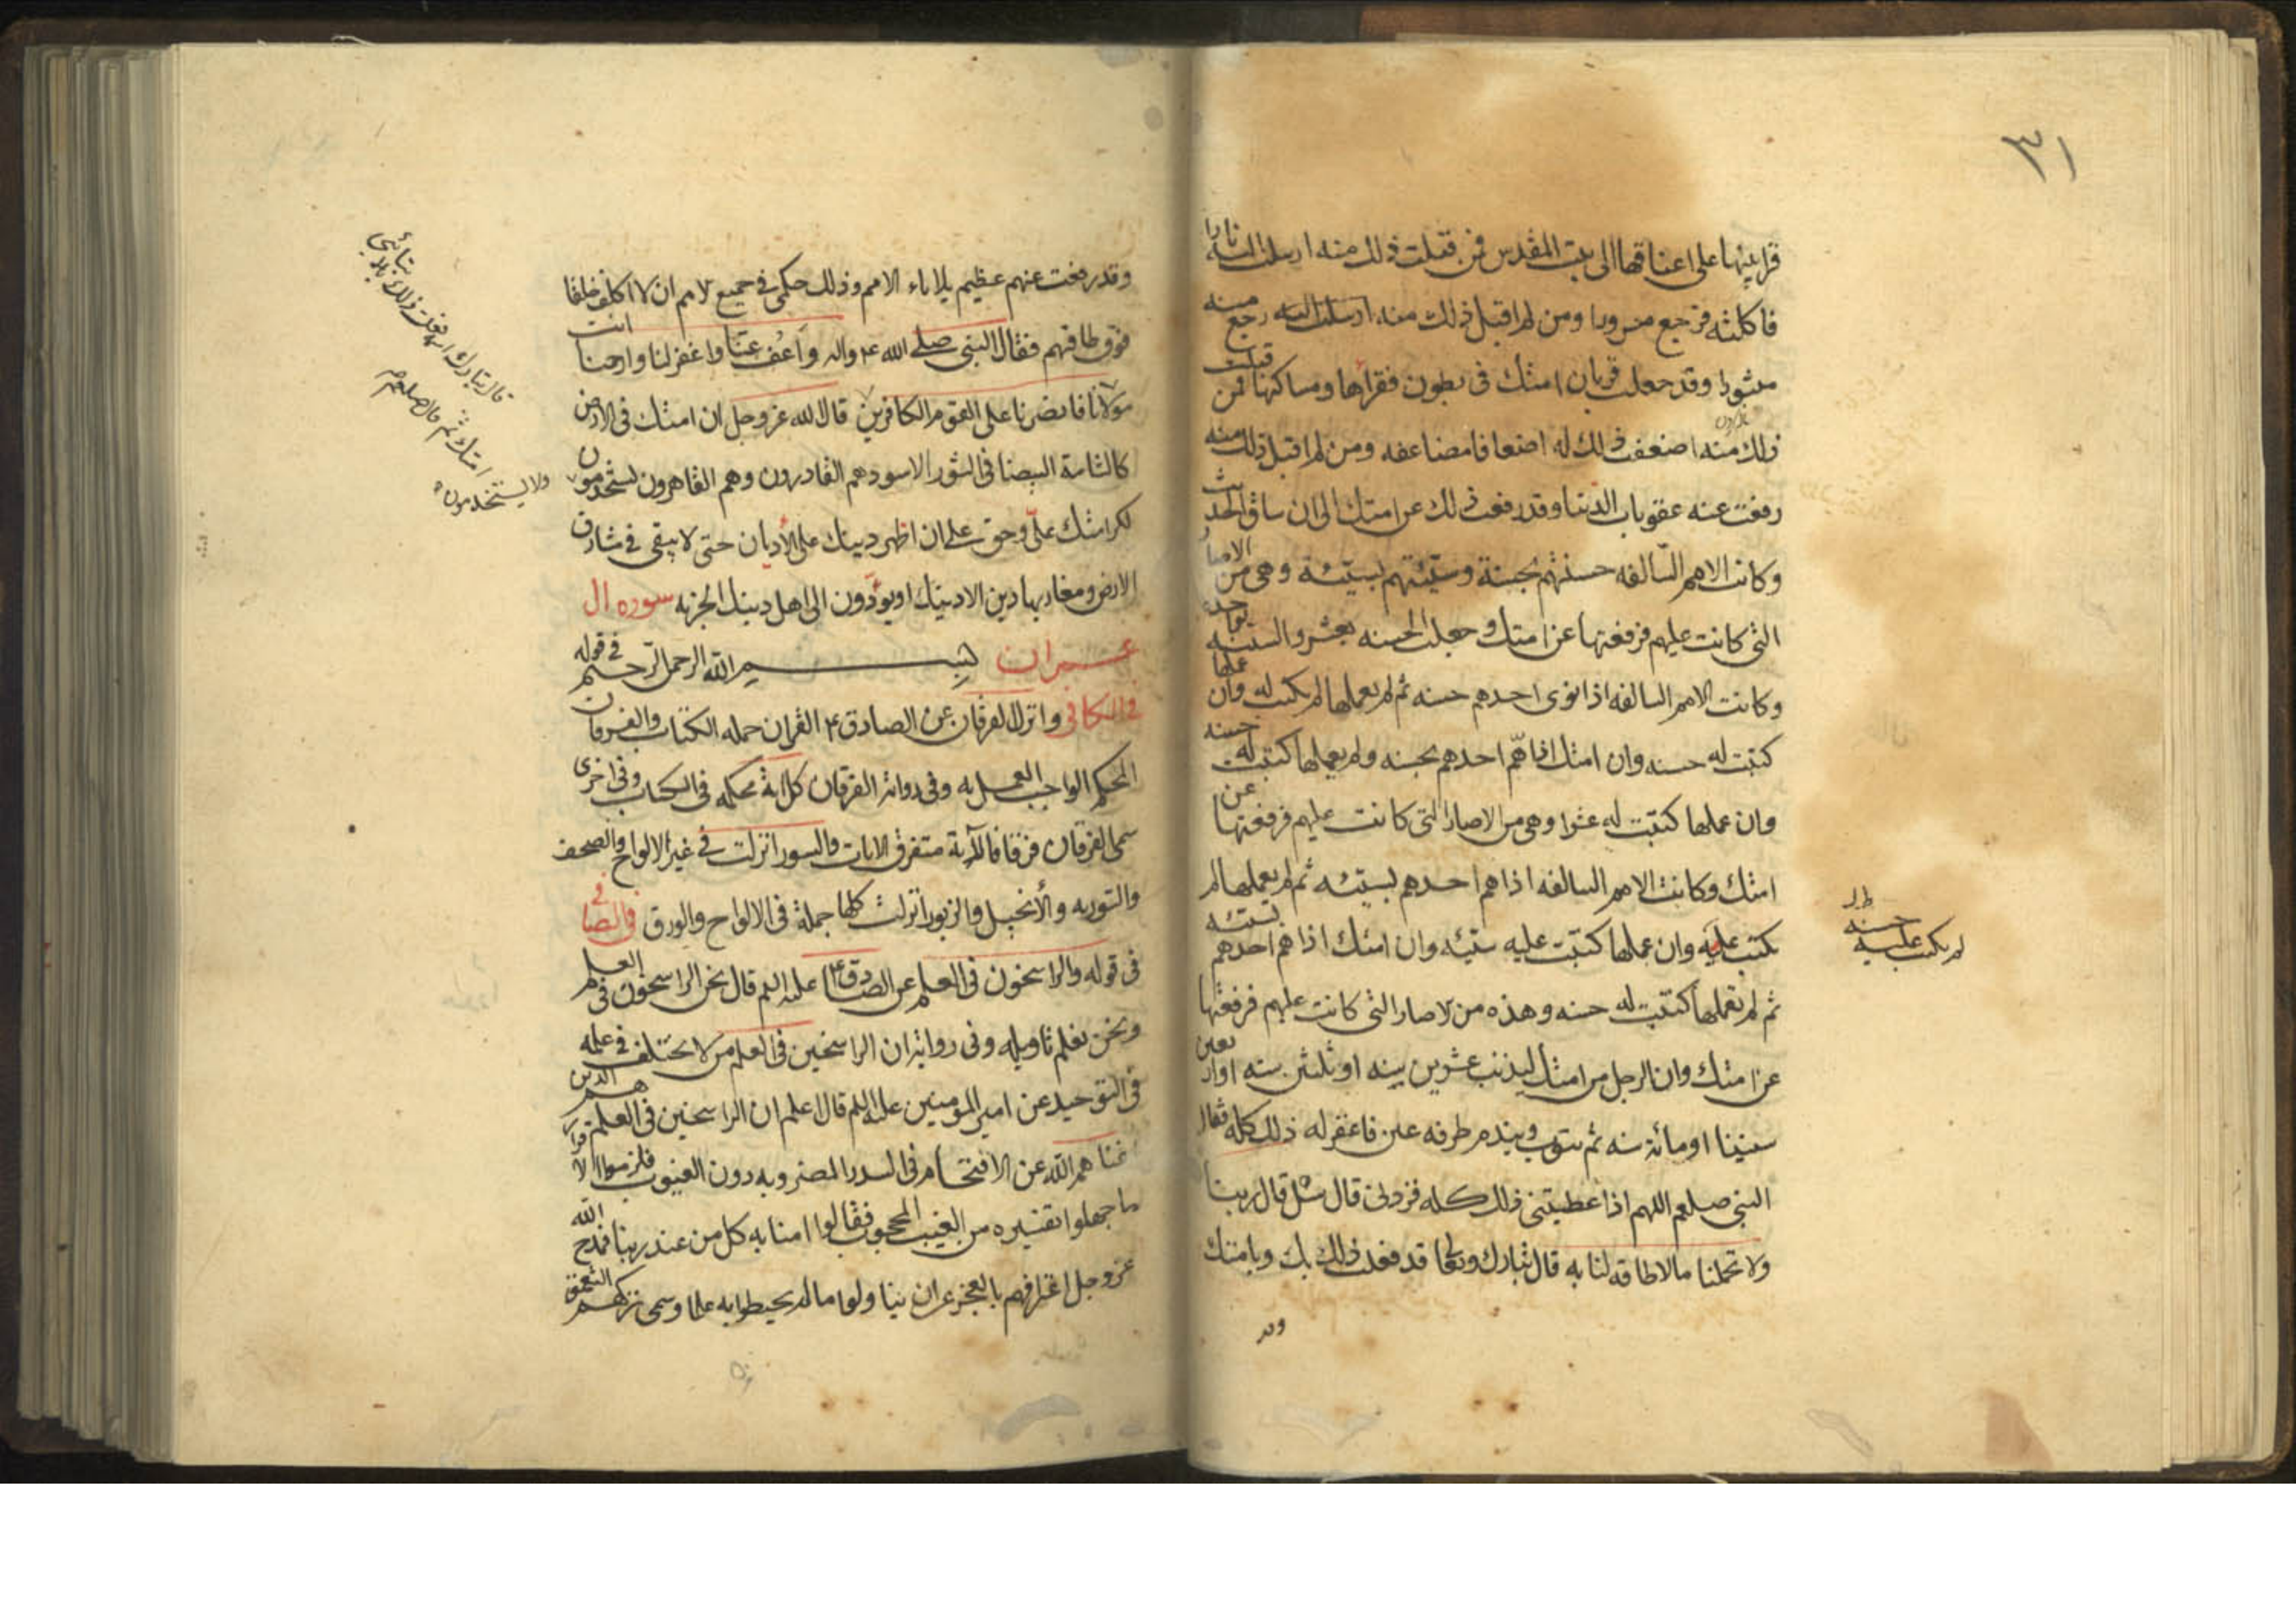 ٣١
قرابينها على اعناقها الى بيت المقدس فمن قبلت ذلك منه ارسلت اليه نارا
فاكلته فرجع مسرورا ومن لم اقبل ذلك منه ارسلت اليه رجع منه
مثبورا وقد جعلت قربان امتك فى بطون فقراءها ومساكنها فمن قبلت
ذلك منه اضعفت ذلك له اضعافا مضاعفه ومن لم اقبل ذلك منه
رفعت عنه عقوبات الدنيا وقد رفعت ذلك عن امتك الى ان ساق الحديث
وكانت الامم السالفه حسنتهم بحسنة وسيئتهم بسيئة وهى من الاصار
التى كانت عليهم فرفعتها عن امتك وجعلت الحسنه بعشر والسيئه بواحده
وكانت الامم السالفه اذا نوى احدهم حسنه ثم لم يعملها لم يكتب له وان عملها
كتبت له حسنه وان امتك اذا همّ احدهم بحسنه ولم يعملها كتبت له حسنه
وان عملها كتبت له عشرا وهى من الاصار التى كانت عليهم فرفعتها عن
امتك وكانت الامم السالفه اذا هم احدهم بسيئه ثم لم يعملها لم
يكتب عليه وان عملها كتبت عليه سيئه وان امتك اذا هم احدهم بسيئه
لم يكتب عليه حسنه
ثم لم يعملها كتبت له حسنه وهذه من الاصار التى كانت عليهم فرفعتها
عن امتك وان الرجل من امتك ليذنب عشرين سنه او ثلثين سنه او اربعين
سنينا او مائة سنه ثم يتوب ويندم طرفه عين فاغفر له ذلك كله فقال
النبى صلعم اللهم اذا اعطيتنى ذلك كله فزدنى قال سل قال ربنا
ولا تحملنا ما لا طاقه لنا به قال تبارك وتعا قد فعلت ذلك بك وبامتك
وقد
وقد رفعت عنهم عظيم بلاياء الامم وذلك حكمى فى جميع الامم ان لا اكلف خلقا
فوق طاقتهم فقال النبى صلے الله ع واله واعُف عنّا واغفر لنا وارحمنا انت
مولانا فانصرنا على القوم الكافرين قال الله عز وجل ان امتك فى الارض
كالشامة البيضا فى الثور الاسود هم القادرون وهم القاهرون يستخدمون
ولا يستخدمون
لكرامتك علىّ وحق على ان اظهر دينك على الأديان حتى لا يبقى فى شارق
الارض ومغاربها دين الا دينك او يؤدّون الى اهل دينك الجزيه سوره ال
عمران بسم الله الرحمن الرحيم فى قوله
فى الكافى وانزل الفرقان عن الصادق ع القران جمله الكتاب والفرقان
المحكم الواجب العمل به وفى رواية الفرقان كل اية محكمه فى الكتاب وفى اخرى
سمى الفرقان فرقانا لأنه متفرق الايات والسور انزلت فى غير الالواح والصحف
والتوريه والأنجيل والزبور انزلت كلها جملة فى الالواح والورق فى الصافى
فى قوله والراسخون فى العلم عن الصادق ع عليه السلم قال نحن الراسخون فى العلم
ونحن نعلم تاويله وفى رواية ان الراسخين فى العلم من لا يختلف فى علمه
فى التوحيد عن امير المؤمنين عليه السلم قال اعلم ان الراسخين فى العلم هم الذين
غناهم الله عن الاقتحام فى السدد المضروبه دون الغيوب فلزموا الاقرار
ما جهلوا تفسيره من الغيب المحجوب فقالوا امنا به كل من عند ربنا فمدح الله
عز وجل اعترافهم بالعجز عن ان يتناولوا ما لم يحيطوا به علما وسمى تركهم التعمق
قال تبارك اسمه فعلت ذلك بتائبى
امتك ثم قال صلعم